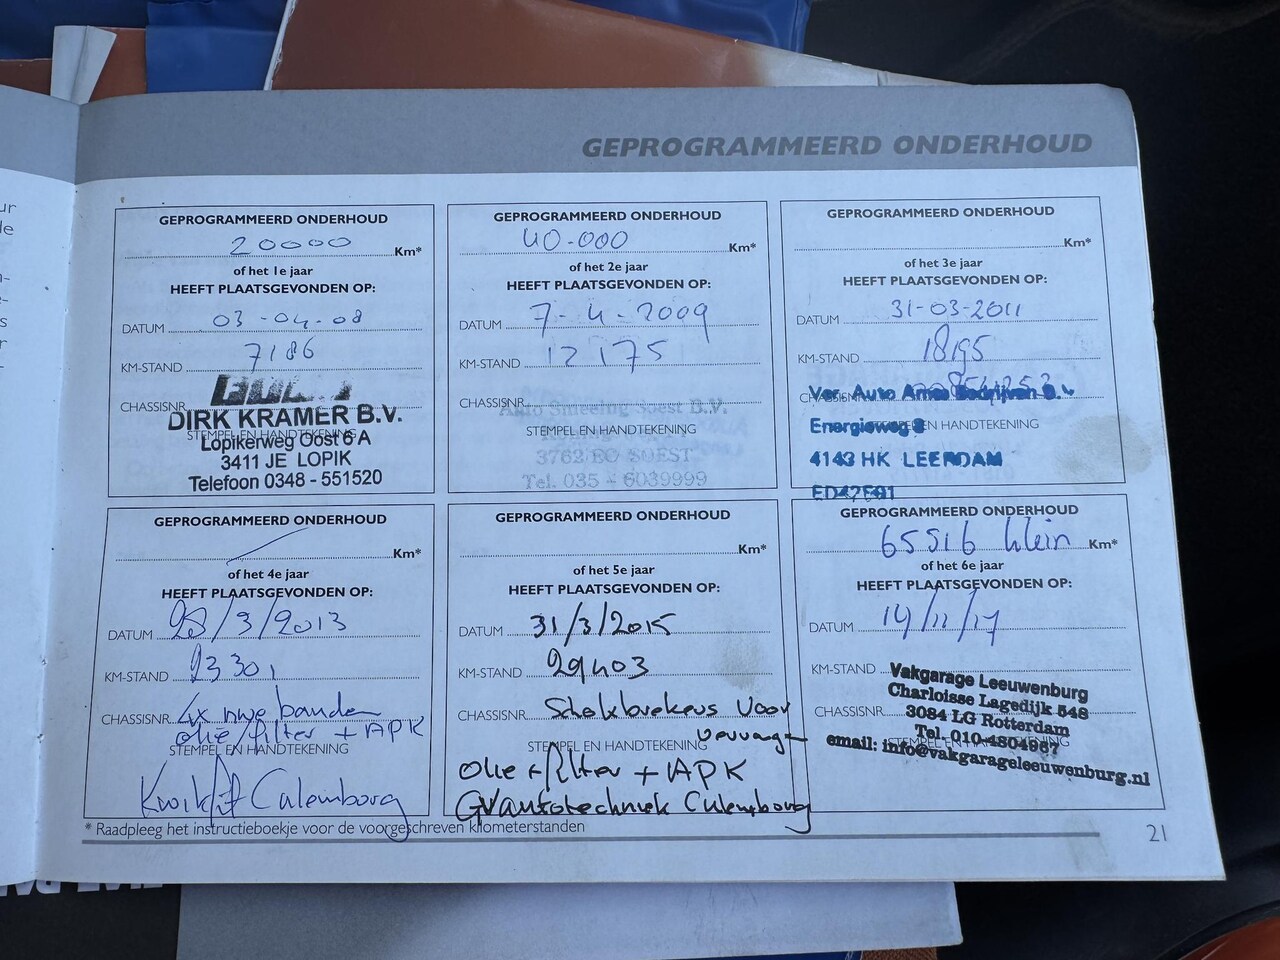 GEPROGRAMMEERD ONDERHOUD
GEPROGRAMMEERD ONDERHOUD
20000 Km*
of het 1e jaar
HEEFT PLAATSGEVONDEN OP:
DATUM 03-04-08
KM-STAND 7186
CHASSISNR.
DIRK KRAMER B.V.
STEMPEL EN HANDTEKENING
Lopikerweg Oost 6 A
3411 JE LOPIK
Telefoon 0348 - 551520
GEPROGRAMMEERD ONDERHOUD
40-000 Km*
of het 2e jaar
HEEFT PLAATSGEVONDEN OP:
DATUM 7-4-2009
KM-STAND 12175
CHASSISNR.
Soest B.V.
STEMPEL EN HANDTEKENING
3762 EC SOEST
Tel. 035 - 6039999
GEPROGRAMMEERD ONDERHOUD
Km*
of het 3e jaar
HEEFT PLAATSGEVONDEN OP:
DATUM 31-03-2011
KM-STAND 18195
Ver. Auto Bedrijven B.V
Energieweg EN HANDTEKENING
4143 HK LEERDAM
GEPROGRAMMEERD ONDERHOUD
Km*
of het 4e jaar
HEEFT PLAATSGEVONDEN OP:
DATUM 28/3/2013
KM-STAND 23301
CHASSISNR. 4x nwe banden
olie/filter + APK
STEMPEL EN HANDTEKENING
Kwikfit Culemborg
GEPROGRAMMEERD ONDERHOUD
Km*
of het 5e jaar
HEEFT PLAATSGEVONDEN OP:
DATUM 31/3/2015
KM-STAND 29403
CHASSISNR. Schokbrekers Voor
STEMPEL EN HANDTEKENING
Olie + filter + APK
GVautotechniek Culemborg
GEPROGRAMMEERD ONDERHOUD
65516 klein Km*
of het 6e jaar
HEEFT PLAATSGEVONDEN OP:
DATUM 14/11/17
KM-STAND
Vakgarage Leeuwenburg
CHASSISNR. Charloisse Lagedijk 548
3084 LG Rotterdam
Tel. 010-4804967
email: info@vakgarageleeuwenburg.nl
* Raadpleeg het instructieboekje voor de voorgeschreven kilometerstanden
21